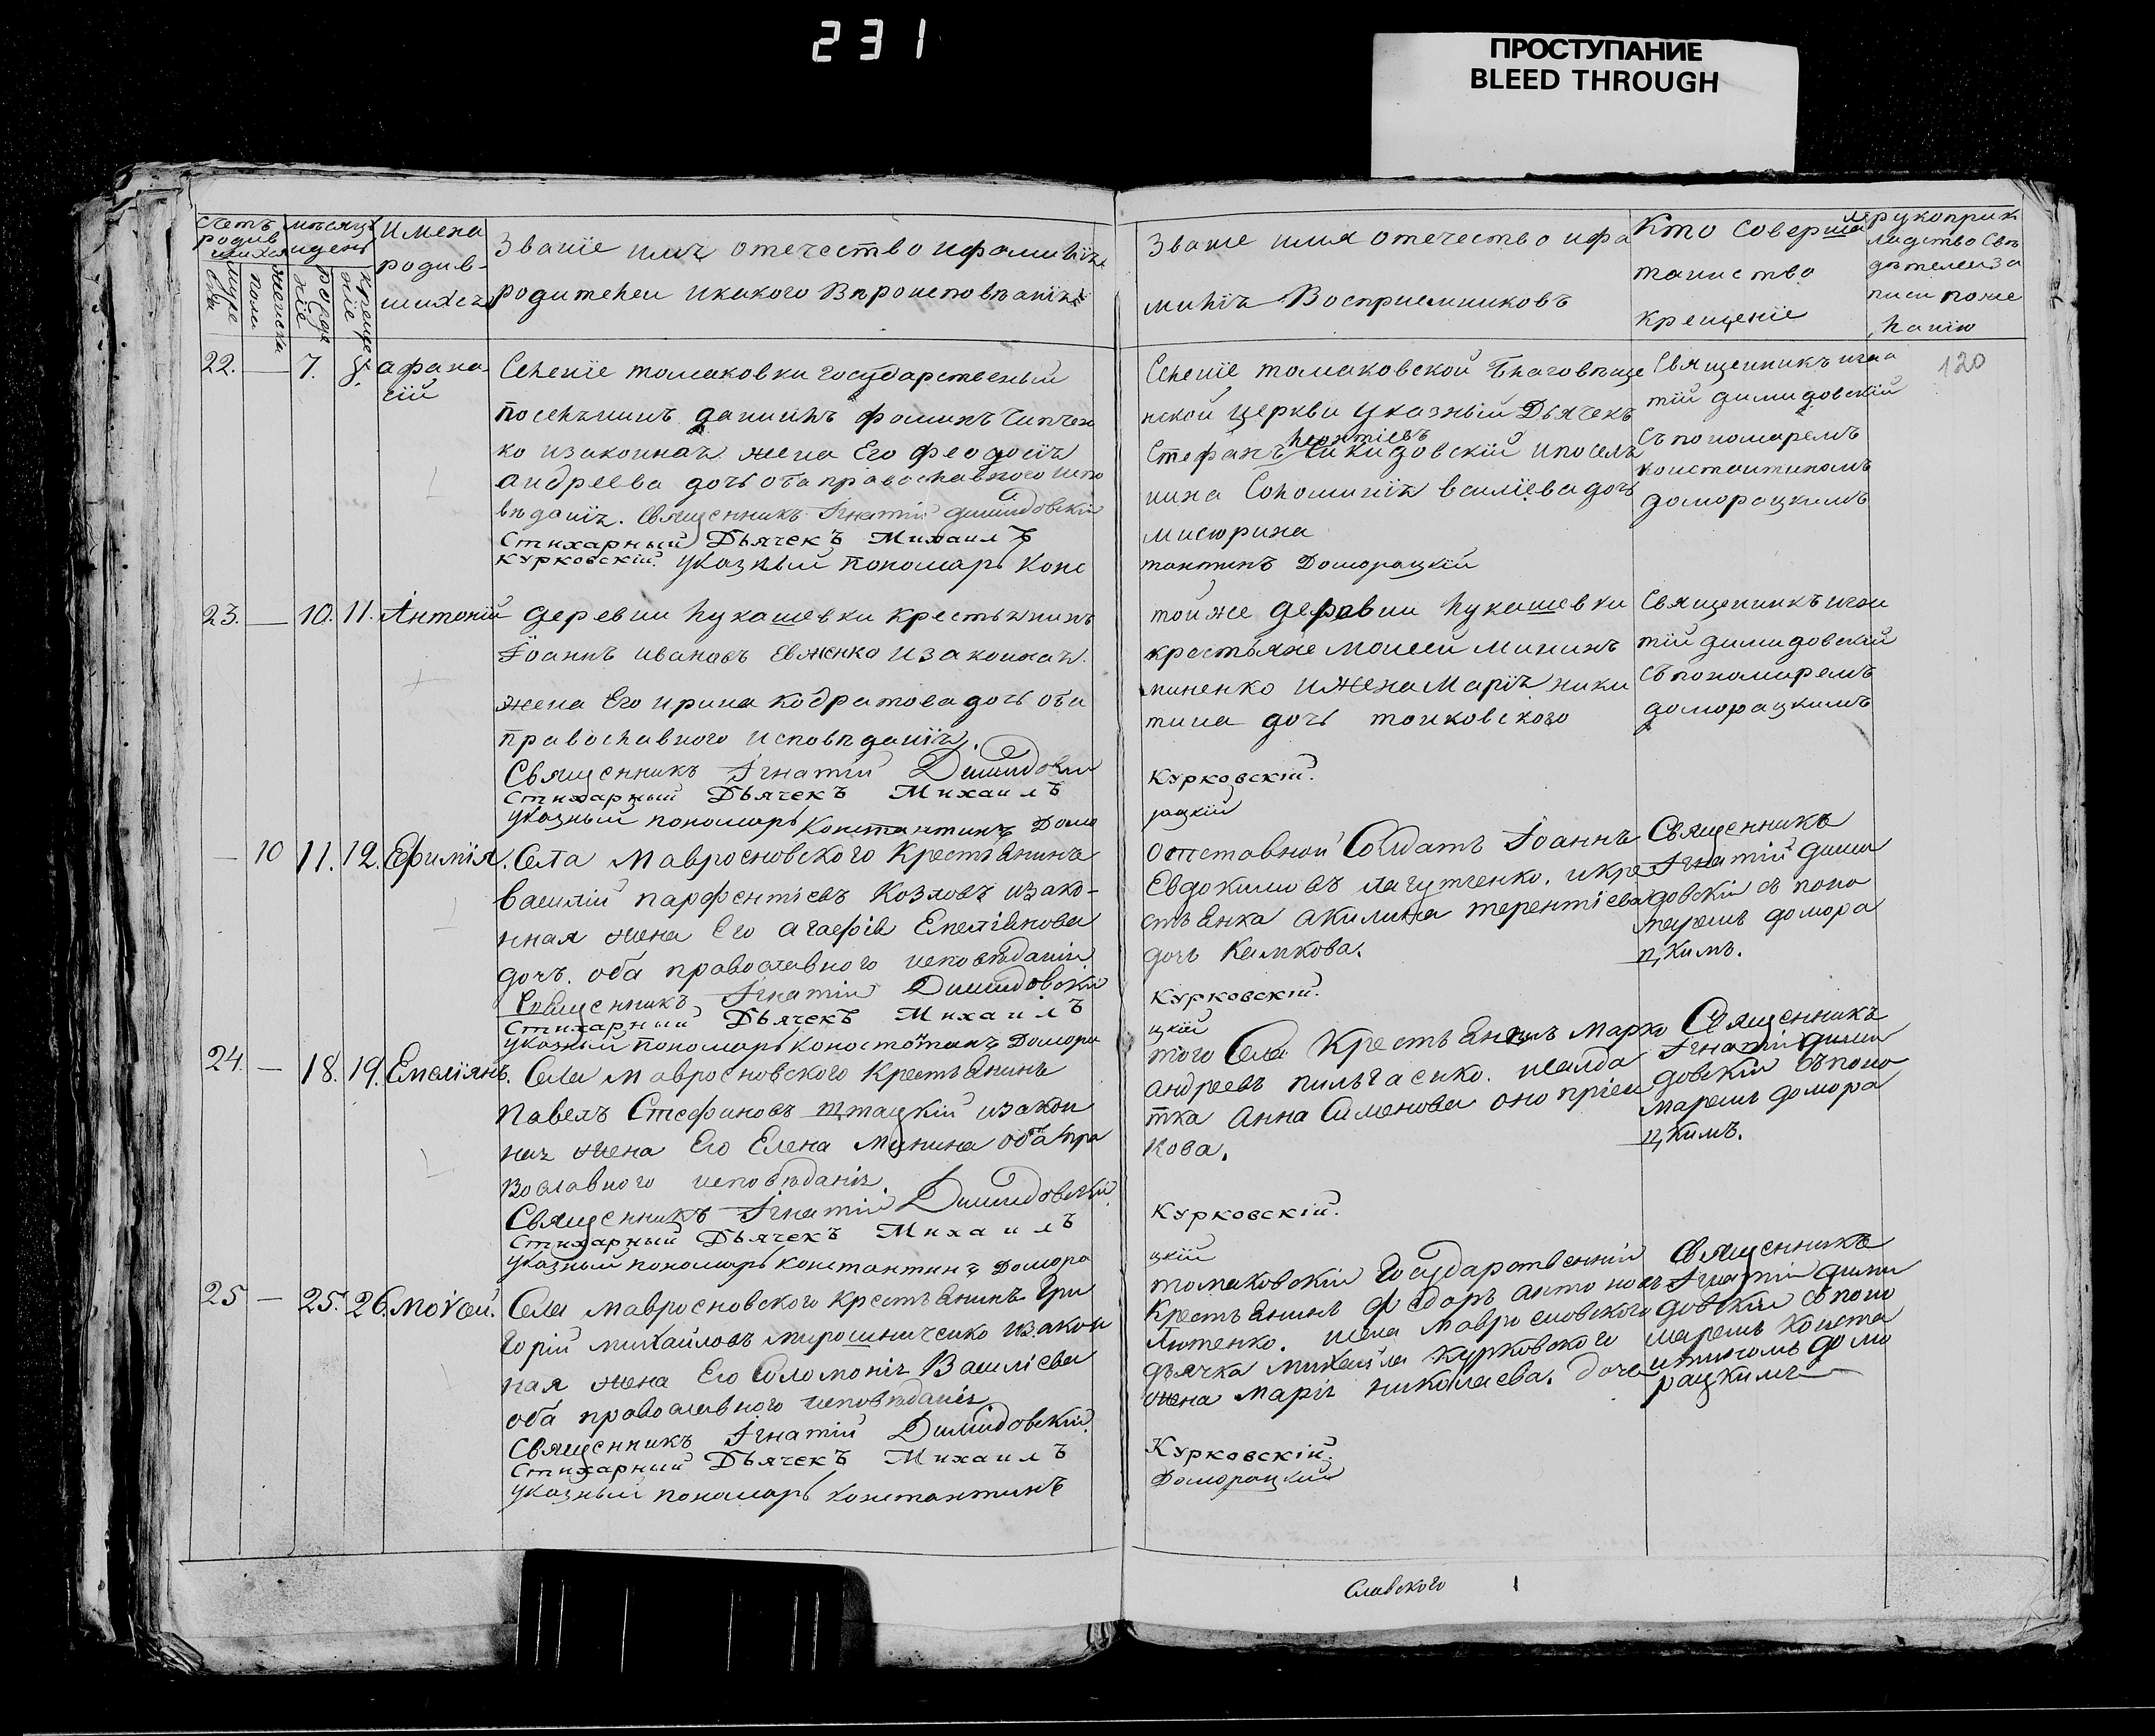 231
ПРОСТУПАНИЕ
BLEED THROUGH
Счетъ родив шихся
мѣсяцъ и день
Имена родив- шихся
Званіе имя отечество и фамилія
родителей и какого Вѣроисповѣданія
Званіе имя отечество и фа
милія Восприемниковъ
Кто Совершал
таинство
крещеніе
рукоприк
ладство Сви
дѣтелей за
писи по же
ланію
120
22. — 7. 8. афана
сій
Селеніе томаковки государственый
поселянинъ даниилъ фоминъ
ко и законная жена Его феодосія
андреева дочь оба православного испо
вѣданія. Священникъ Ігнатій Димидовскій
Стихарный Дьячекъ Михаилъ
Курковскій. Указный пономарь Конс
Селеніе томаковской Благовѣще
нской церкви Указный Дьячекъ
Стефанъ леонтіевъ Дикидовскій и посел
нина Соломонія василіева дочь
мисюрина
тантинъ Доморацкій
Священникъ игна
тій димидовскій
съ пономаремъ
константиномъ
доморацкимъ
23. — 10. 11. Антоній
деревни лукашевки крестьянинъ
Іоаннъ ивановъ Евженко и законная
жена Его ирина кодратова дочь оба
православного исповѣданія.
Священникъ Ігнатій Димидовскій
Стихарный Дьячекъ Михаилъ
Указный пономарь Константинъ Домо
той же деревни лукашевки
крестьяне моисей мининъ
миненко и жена Марія ники
тина дочь
Курковскій.
рацкій
Священникъ игна
тій димидовскій
съ пономаремъ
доморацкимъ
— 10 11. 12. Ефимія.
Села Мавросновского Крестьянинъ
василій парфентіевъ Козловъ и зако-
нная жена Его агафія Емеліянова
дочь. оба православного исповѣданія
Священникъ Ігнатій Димидовскій
Стихарный Дьячекъ Михаилъ
Указный пономарь Константинъ Домора
Отставной Солдатъ Іоаннъ
Евдокимовъ лагутченко. и кре
стьянка акилина терентіева
дочь Климкова.
Курковскій.
цкій
Священникъ
Ігнатій дими
довскій съ поно
маремъ домора
цкимъ.
24. — 18. 19. Емеліянъ.
Села Мавросновского Крестьянинъ
Павелъ Стефановъ штацкій и закон
ная жена Его Елена Минина оба пра
вославного исповѣданія.
Священникъ Ігнатій Димидовскій.
Стихарный Дьячекъ Михаилъ
Указный пономарь константинъ Домора
того Села Крестьянинъ Марко
андреевъ и салда
тка Анна Сименова оно пріен
кова.
Курковскій.
цкій
Священникъ
Ігнатій дими
довскій съ поно
маремъ домора
цкимъ.
25 — 25. 26. Моѵсей.
Села Мавросновского крестьянинъ Гри
горій михайловъ мирошниченко и закон
ная жена Его Соломонія Василіева
оба православного исповѣданія
Священникъ Ігнатій Димидовскій.
Стихарный Дьячекъ Михаилъ
Указный пономарь константинъ
томаковскій Государственній
Крестьянинъ федоръ антоновъ
Лютенко. и села Мавросновского
дьячка михаила Курковского
жена Марія николаева. дочь
Курковскій.
Доморацкій
Священникъ
Ігнатій дими
довскій съ поно
маремъ конста
нтиномъ домо
рацкимъ
Славского 1